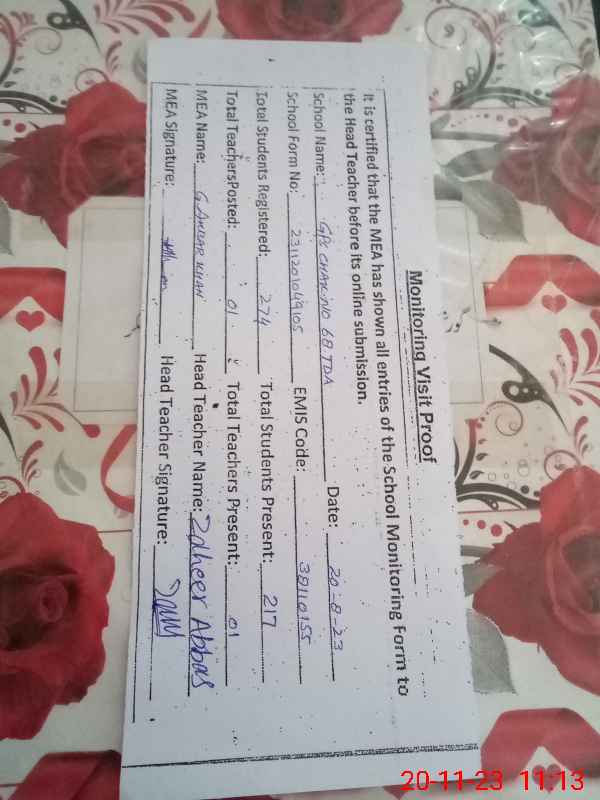 Monitoring Visit Proof
It is certified that the MEA has shown all entries of the School Monitoring Form to
the Head Teacher before its online submission.
School Name: GPS CHAK NO 68 TDA Date: 20-8-23
School Form No: 2311201049105 EMIS Code: 38110155
Total Students Registered: 274 Total Students Present: 217
Total TeachersPosted: 01 Total Teachers Present: 01
MEA Name: G. AMBAR KHAN Head Teacher Name: Zaheer Abbas
MEA Signature: Head Teacher Signature:
20-11-23 11:13